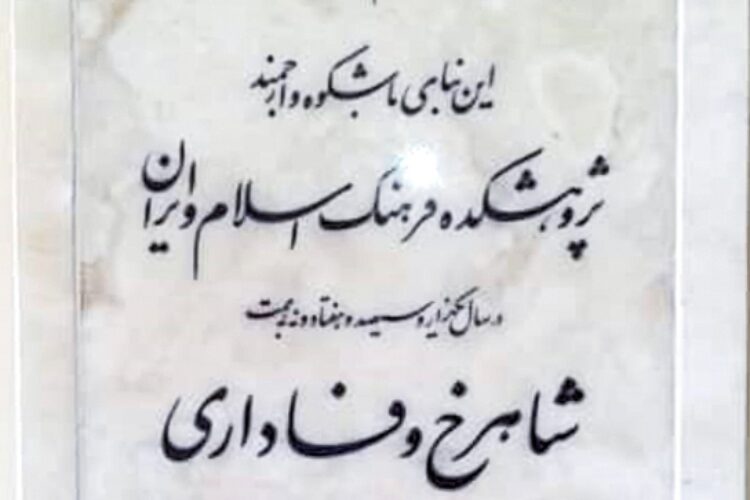 این بنای باشکوه و ارجمند
پژوهشکده فرهنگ اسلام و ایران
در سال یکهزار و سیصد و هفتاد و نه به همت
شاهرخ وفاداری